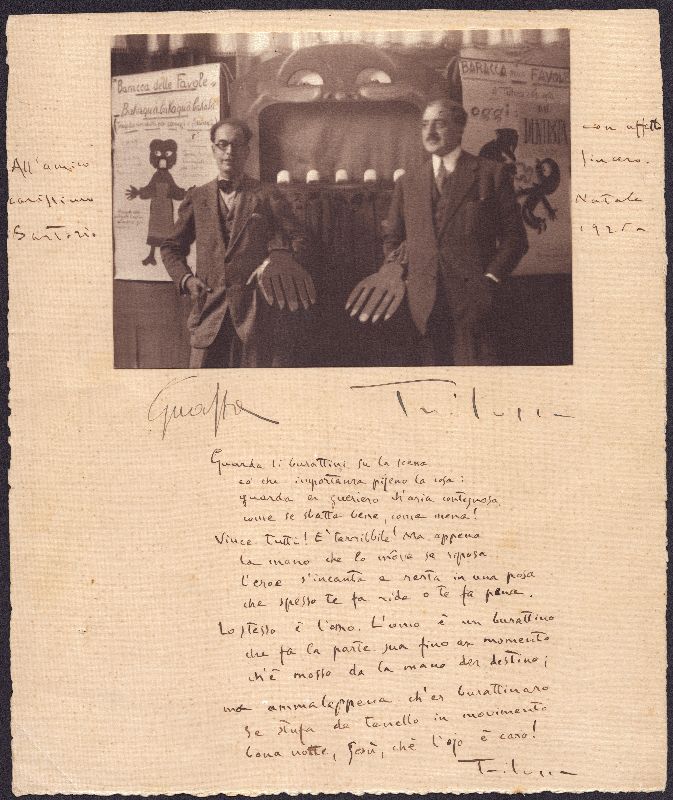 Baracca delle Favole
Bakaquà bakaquà bakalà
BARACCA delle FAVOLE
oggi:
All'amico
carissimo
Sartorio
con affetto
sincero.
Natale
1925
Trilussa
Guarda li burattini su la scena
co' che importanza pijeno la cosa:
guarda er gueriero d'aria contegnosa
come se sbatte bene, come mena!
Vince tutti! È terribbile! Ma appena
la mano che lo move se riposa
l'eroe s'incanta e resta in una posa
che spesso te fa ride o te fa pena.
Lo stesso è l'omo. L'omo è un burattino
che fa la parte sua fino ar momento
ch'è mosso da la mano der destino;
ma ammalappena ch'er burattinaro
se stufa de tenello in movimento
bona notte, Gesù, chè l'ojo è caro!
Trilussa